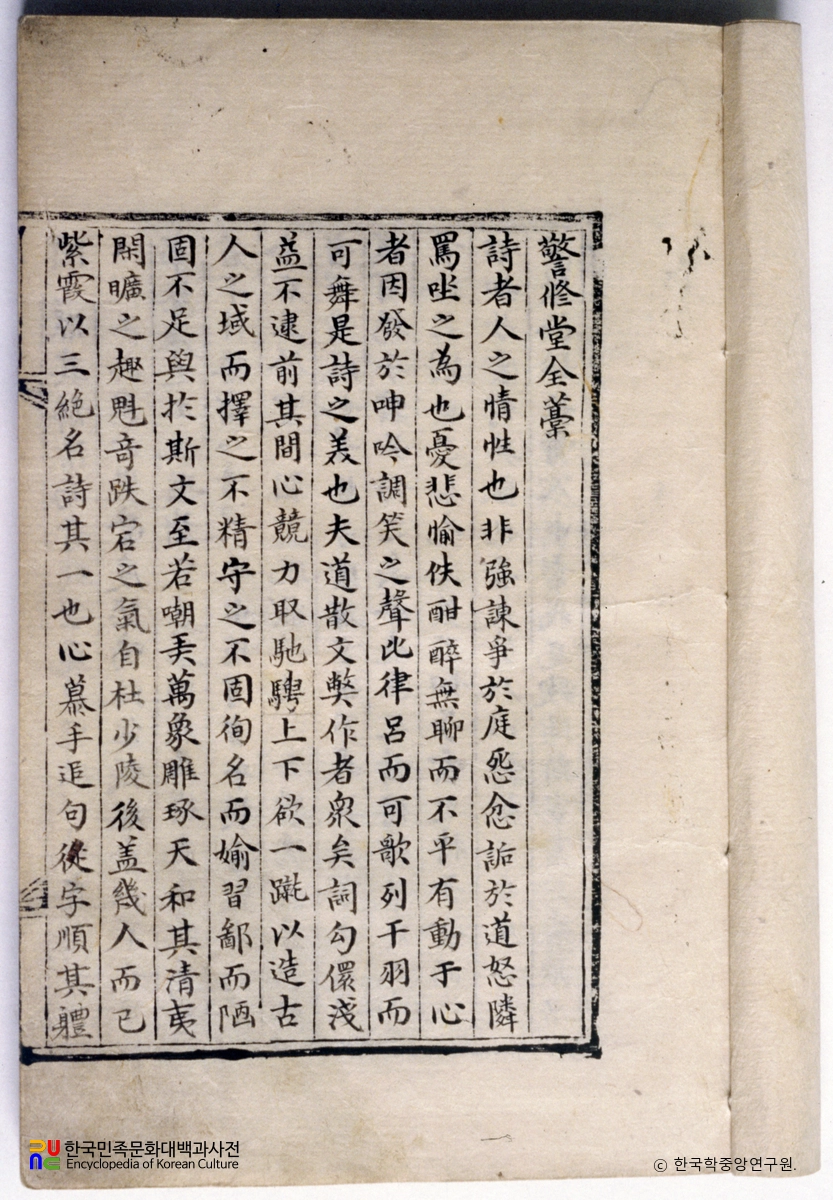 警修堂全藁
詩者人之情性也非強諫爭於庭怨忿詬於道怒隣
罵坐之為也憂悲愉佚酣醉無聊而不平有動于心
者因發於呻吟調笑之聲比律呂而可歌列干羽而
可舞是詩之美也夫道散文獘作者衆矣詞勾儇淺
益不逮前其間心競力取馳騁上下欲一蹴以造古
人之域而擇之不精守之不固徇名而媮習鄙而陋
固不足與扵斯文至若嘲弄萬象雕琢天和其清夷
閑曠之趣魁奇跌宕之氣自杜少陵後盖幾人而已
紫霞以三絶名詩其一也心慕手追句從字順其軆
한국민족문화대백과사전
Encyclopedia of Korean Culture
ⓒ 한국학중앙연구원.